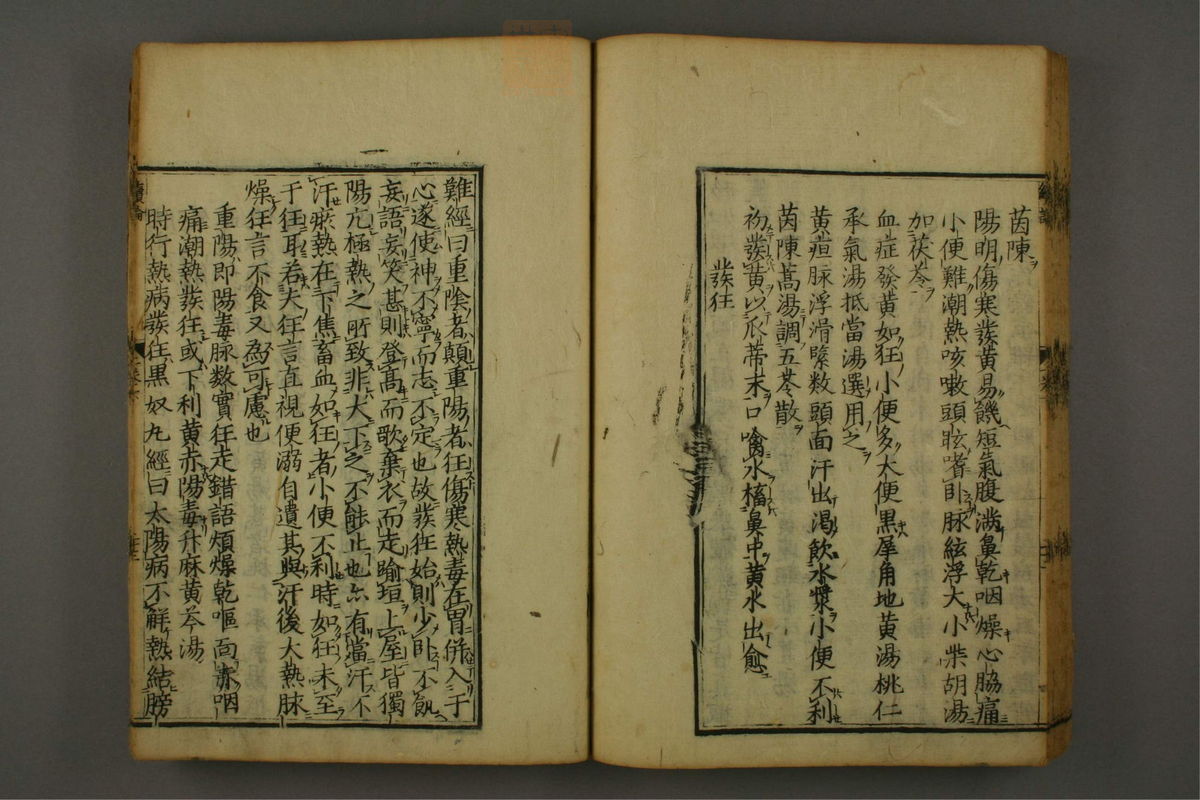 茵陳
陽明傷寒發黃易饑短氣腹滿鼻乾咽燥心脇痛
小便難潮熱咳嗽頭眩嗜卧脉絃浮大小柴胡湯
加茯苓
血症發黃如狂小便多大便黑犀角地黃湯桃仁
承氣湯抵當湯選用之
黃疸脉浮滑緊数頭面汗出渴飲水漿小便不利
茵陳蒿湯調五苓散
初發黃以瓜蒂末口噙水搐鼻中黃水出愈
發狂
難經曰重陰者顛重陽者狂傷寒熱毒在胃併入于
心遂使神不寧而志不定也故發狂始則少卧不飢
妄語妄笑甚則登高而歌棄衣而走踰垣上屋皆獨
陽亢極熱之所致非大下之不能止也亦有當汗不
汗瘀熱在下焦畜血如狂者小便不利時如狂未至
于狂耳若大狂言直視便溺自遺其與汗後大熱脉
燥狂言不食又為可慮也
重陽即陽毒脉数實狂走錯語煩燥乾嘔面赤咽
痛潮熱發狂或下利黃赤陽毒升麻黃芩湯
時行熱病發狂黑奴丸經曰太陽病不解熱結膀